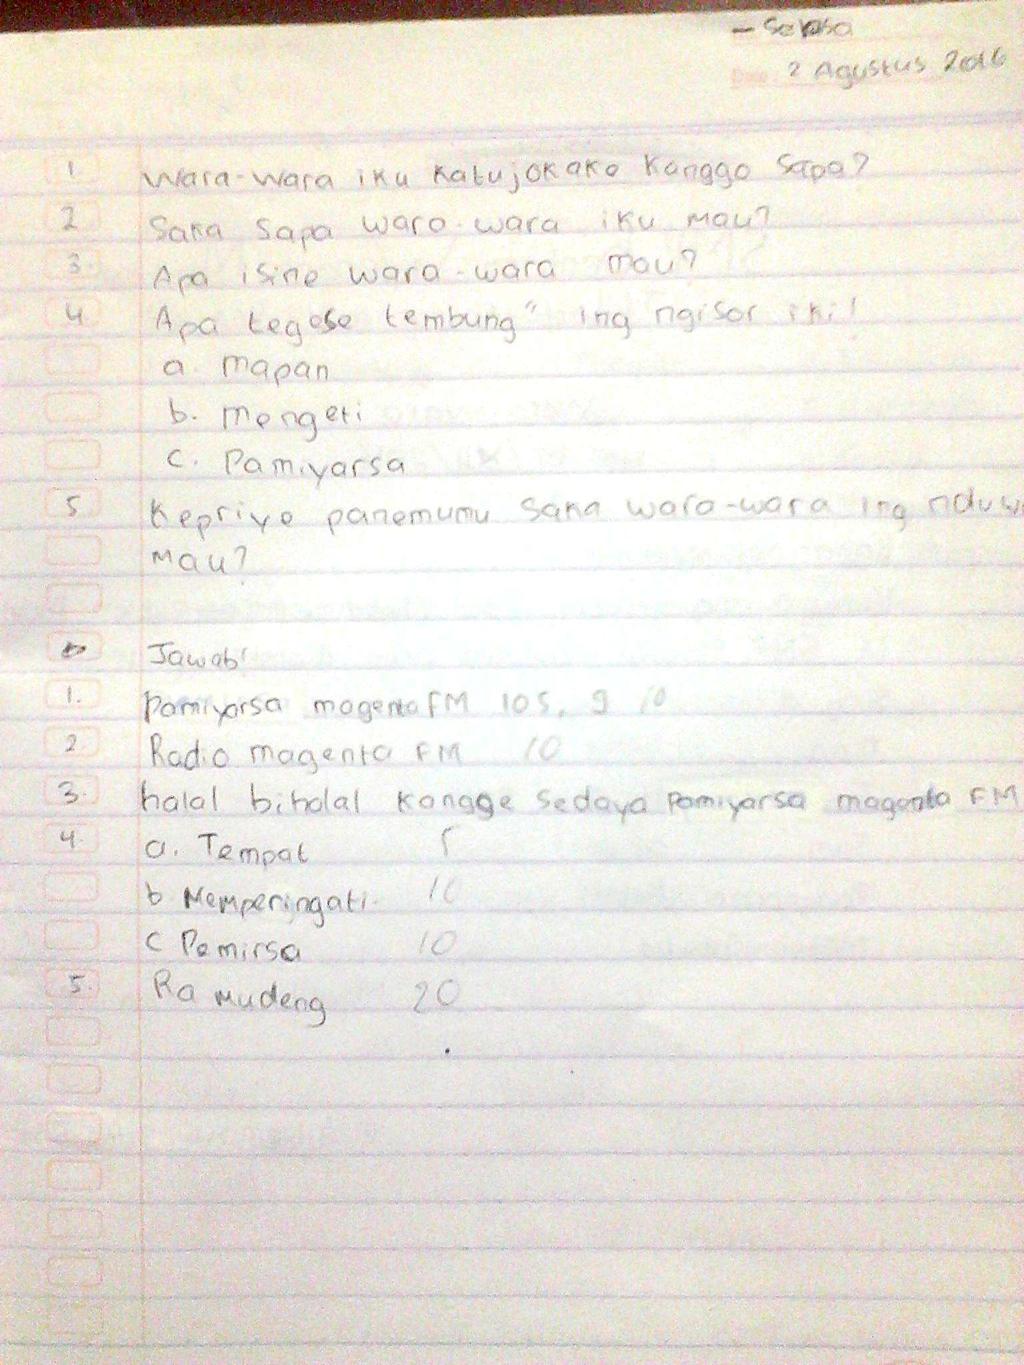 - Selasa
2 Agustus 2016
1 Wara-wara iku katujokake kanggo sapa?
2 Saka sapa wara-wara iku mau?
3. Apa isine wara-wara mau?
4 Apa tegese tembung" ing ngisor iki!
a. mapan
b. mengeti
c. Pamiyarsa
5 Kepriye panemumu saka wara-wara ing
mau?
Jawab!
1. Pamiyarsa magenta FM 105, 9 10
2 Radio magenta FM 10
3. halal bihalal kangge sedaya pamiyarsa magenta FM
4. a. Tempat 5
b Memperingati. 10
c Pemirsa 10
5. Ra mudeng 20